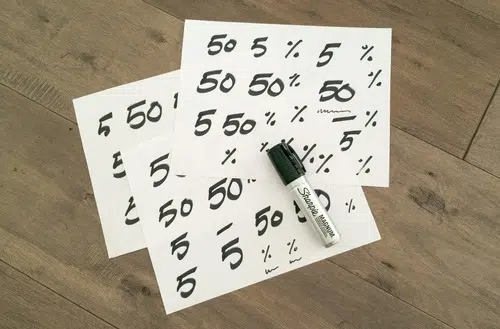 50 5 % 5 %
50 50 % 50 %
5 50 % - %
% % % 5 %
5 50
5
5
5
50 50
5 - 50 50 %
5 5 % %
Sharpie MAGNUM